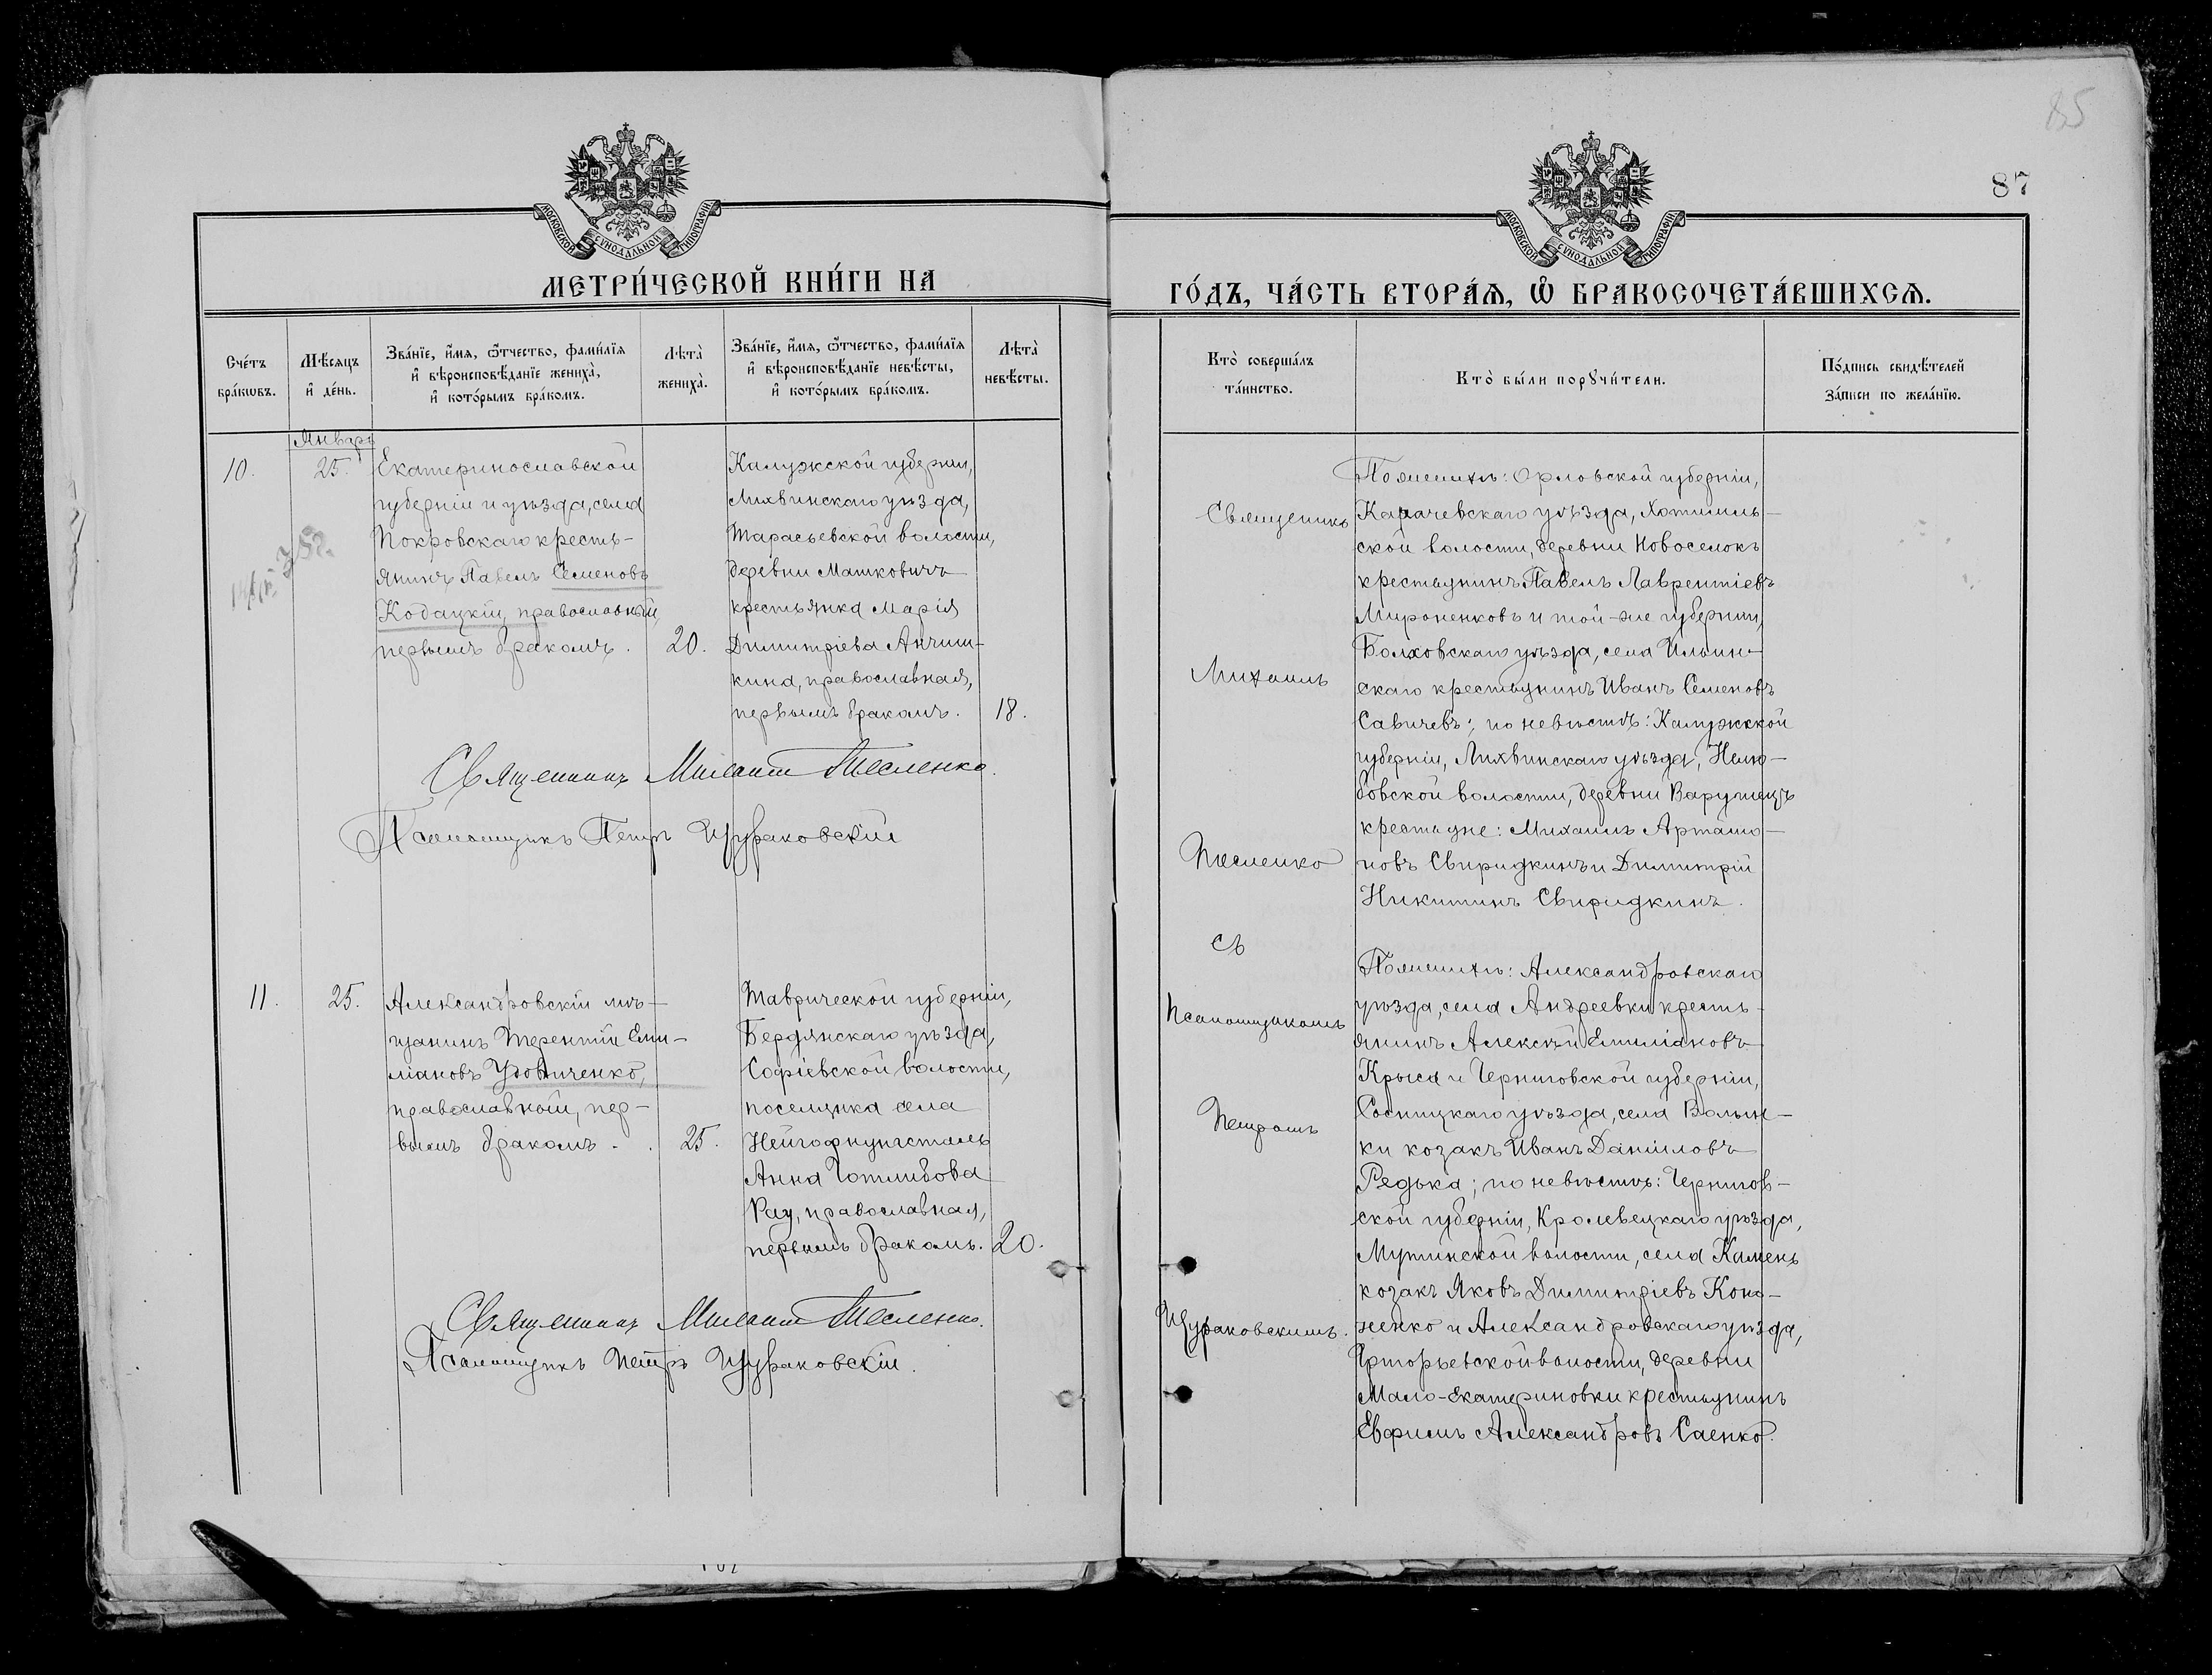 85
87
МОСКОВСКОЙ СѴНОДАЛЬНОЙ ТИПОГРАФІИ
МОСКОВСКОЙ СѴНОДАЛЬНОЙ ТИПОГРАФІИ
МЕТРИ́ЧЕСКОЙ КНИ́ГИ НА
ГО́ДЪ, ЧА́СТЬ ВТОРА́Ѧ, Ѽ БРАКОСОЧЕТА́ВШИХСѦ.
Сче́тъ
бра́кѡвъ.
Мѣ́сяцъ
и҆ де́нь.
Зва́нїе, и҆́мѧ, ѻ҆́тчество, фами́лїѧ
и҆ вѣроисповѣ́данїе жениха̀,
и҆ кото́рымъ бра́комъ.
Лѣта̀
жениха̀.
Зва́нїе, и҆́мѧ, ѻ҆́тчество, фами́лїѧ
и҆ вѣроисповѣ́данїе невѣ́сты,
и҆ кото́рымъ бра́комъ.
Лѣта̀
невѣ́сты.
Кто̀ соверша́лъ
та́инство.
Кто̀ бы́ли порꙋчи́тели.
По́дпись свидѣ́телей
за́писи по жела́нїю.
Январь
10.
25.
Екатеринославской
губерніи и уѣзда, села
Покровскаго кресть-
янинъ Павелъ Семеновъ
Кодацкій, православный,
первымъ бракомъ.
20.
Калужской губерніи,
Лихвинскаго уѣзда,
Тарасьевской волости,
деревни Машковичъ
крестьянка Марія
Димитріева Анчиш-
кина, православная,
первымъ бракомъ.
18.
Священникъ Михаилъ Тесленко.
Псаломщикъ Петръ Щураковскій
11.
25.
Александровскій мѣ-
щанинъ Терентій Еми-
ліановъ Удовиченко,
православный, пер-
вымъ бракомъ.
25.
Таврической губерніи,
Бердянскаго уѣзда,
Софіевской волости,
поселянка села
Нейгофнунгсталь
Анна Готлибова
Рау, православная,
первымъ бракомъ.
20.
Священникъ Михаилъ Тесленко.
Псаломщикъ Петръ Щураковскій.
Священникъ
Михаилъ
Тесленко
съ
Псаломщикомъ
Петромъ
Щураковскимъ.
По женихѣ: Орловской губерніи,
Карачевскаго уѣзда, Хотимль-
ской волости, деревни Новоселокъ
крестьянинъ Павелъ Лаврентіевъ
Мироненковъ и той-же губерніи,
Болховскаго уѣзда, села Ильин-
скаго крестьянинъ Иванъ Семеновъ
Савичевъ; по невѣстѣ: Калужской
губерніи, Лихвинскаго уѣзда, Нелю-
бовской волости, деревни
крестьяне: Михаилъ Артамо-
новъ Свиридкинъ и Димитрій
Никитинъ Свиридкинъ.
По женихѣ: Александровскаго
уѣзда, села Андреевки кресть-
янинъ Алексѣй Емиліановъ
Крыса и Черниговской губерніи,
Сосницкаго уѣзда, села Волын-
ки козакъ Иванъ Даніиловъ
Редька; по невѣстѣ: Чернигов-
ской губерніи, Кролевецкаго уѣзда,
Мутинской волости, села Камень
козакъ Яковъ Димитріевъ Коно-
ненко и Александровскаго уѣзда,
Григорьевской волости, деревни
Мало-Екатериновки крестьянинъ
Евфимъ Александровъ Саенко.